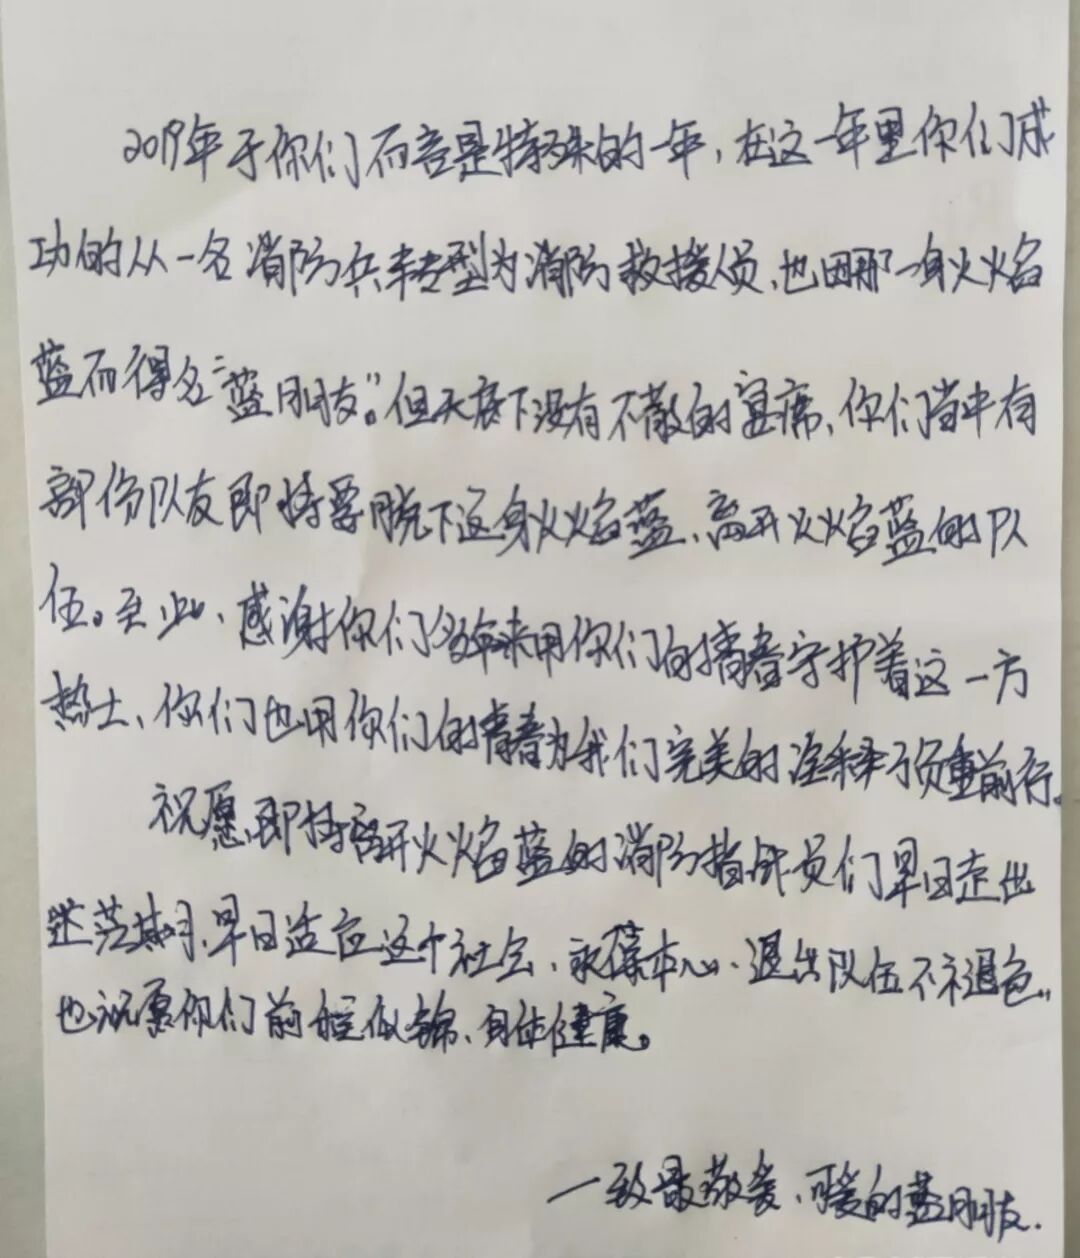 2019年于你们而言是特殊的一年，在这一年里你们成
功的从一名消防兵转型为消防救援人员、也因那一身火焰
蓝而得名“蓝朋友”。但天底下没有不散的宴席、你们当中有
部份队友即将要脱下这身火焰蓝、离开火焰蓝的队
伍。至此、感谢你们多年来用你们的青春守护着这一方
热土、你们也用你们的青春为我们完美的诠释了负重前行。
祝愿即将离开火焰蓝的消防指战员们早日走出
迷茫期、早日适应这个社会、永葆本心、退出队伍不退色..
也祝愿你们前程似锦、身体健康。
一致最敬爱、可爱的蓝朋友.